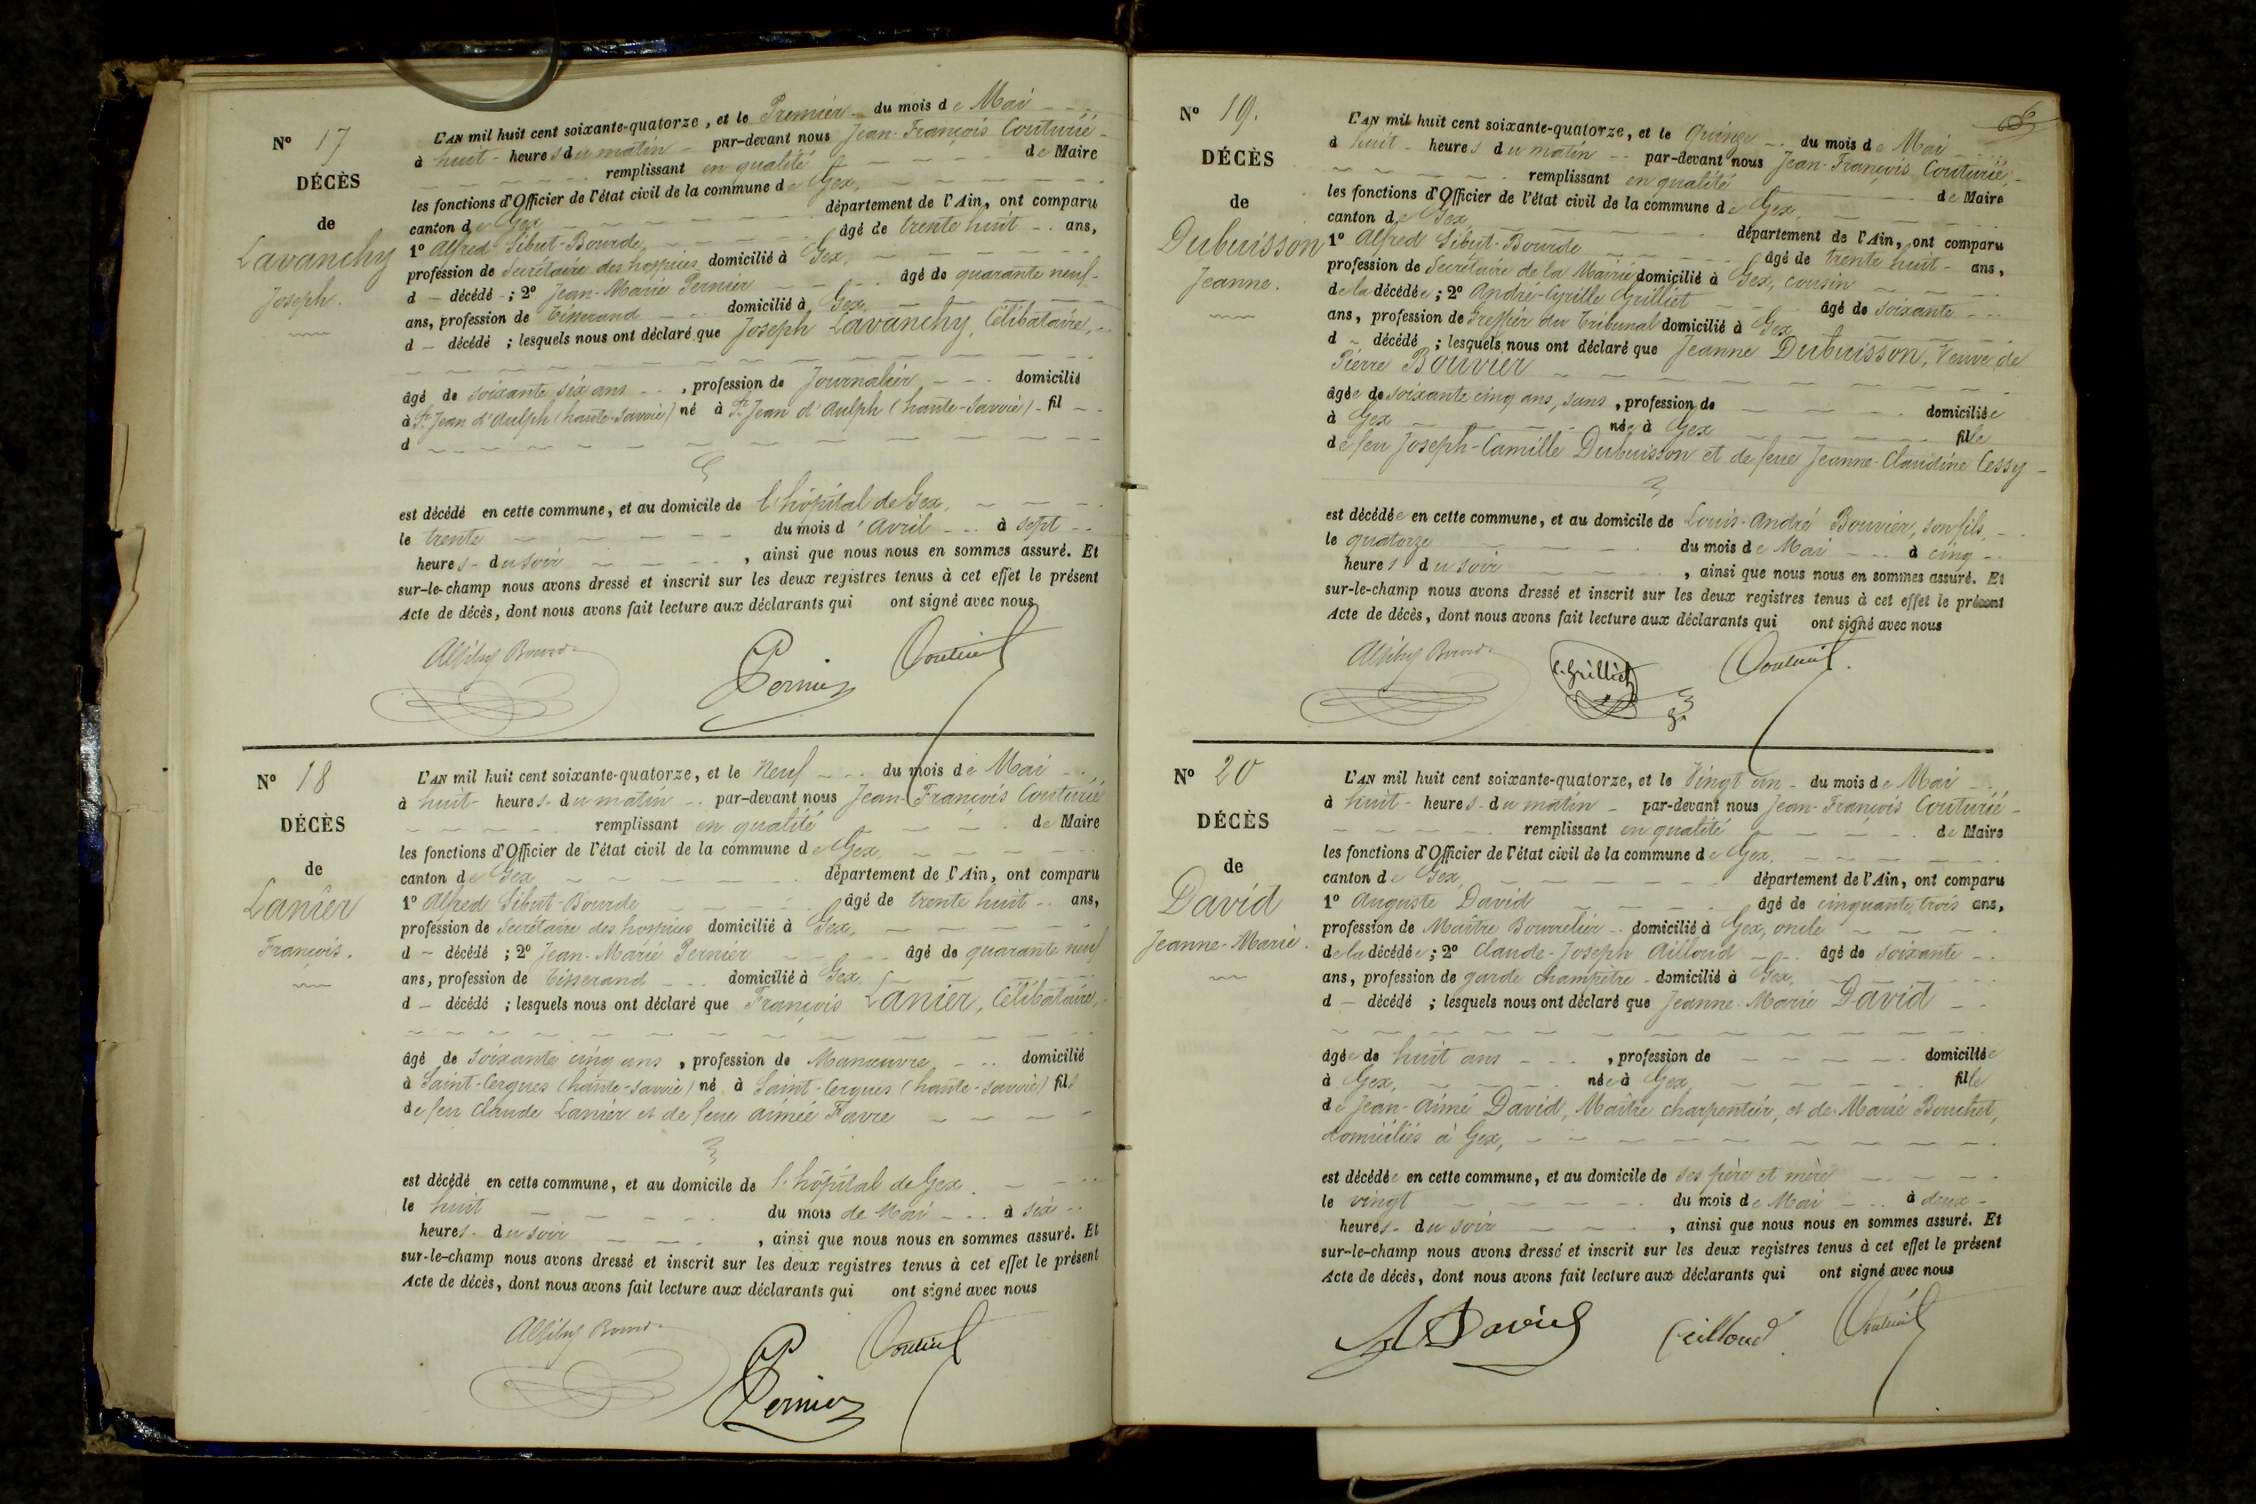 N° 17
DÉCÈS
de
Lavanchy
Joseph.
L'AN mil huit cent soixante-quatorze, et le Premier du mois de Mai
à huit heures du matin par-devant nous Jean-François Couturié
remplissant en qualité de Maire
les fonctions d'Officier de l'état civil de la commune de Gex,
canton de Gex département de l'Ain, ont comparu
1° Alfred Sibut-Bourde, âgé de trente huit ans,
profession de Secrétaire des hospices domicilié à Gex,
d décédé ; 2° Jean-Marie Pernier âgé de quarante neuf
ans, profession de Tisserand domicilié à Gex,
d décédé ; lesquels nous ont déclaré que Joseph Lavanchy, Célibataire,
âgé de soixante six ans, profession de Journalier, domicilié
à St Jean d'Aulph (haute-Savoie) né à St Jean d'Aulph (haute-Savoie) fil
d
est décédé en cette commune, et au domicile de l'hôpital de Gex,
le trente du mois d'Avril à sept
heures du soir, ainsi que nous nous en sommes assuré. Et
sur-le-champ nous avons dressé et inscrit sur les deux registres tenus à cet effet le présent
Acte de décès, dont nous avons fait lecture aux déclarants qui ont signé avec nous
Pernier Couturié
N° 18
DÉCÈS
de
Lanier
François.
L'AN mil huit cent soixante-quatorze, et le Neuf du mois de Mai
à huit heures du matin par-devant nous Jean-François Couturié
remplissant en qualité de Maire
les fonctions d'Officier de l'état civil de la commune de Gex,
canton de Gex département de l'Ain, ont comparu
1° Alfred Sibut-Bourde âgé de trente huit ans,
profession de Secrétaire des hospices domicilié à Gex,
d décédé ; 2° Jean-Marie Pernier âgé de quarante neuf
ans, profession de Tisserand domicilié à Gex,
d décédé ; lesquels nous ont déclaré que François Lanier, Célibataire,
âgé de soixante cinq ans, profession de Manœuvre domicilié
à Saint-Cergues (haute-Savoie) né à Saint-Cergues (haute-Savoie) fils
de feu Claude Lanier et de feue Aimée Favre
est décédé en cette commune, et au domicile de l'hôpital de Gex.
le huit du mois de Mai à six
heures du soir, ainsi que nous nous en sommes assuré. Et
sur-le-champ nous avons dressé et inscrit sur les deux registres tenus à cet effet le présent
Acte de décès, dont nous avons fait lecture aux déclarants qui ont signé avec nous
Pernier Couturié
6
N° 19.
DÉCÈS
de
Dubuisson
Jeanne.
L'AN mil huit cent soixante-quatorze, et le Quinze du mois de Mai
à huit heures du matin par-devant nous Jean-François Couturié,
remplissant en qualité de Maire
les fonctions d'Officier de l'état civil de la commune de Gex,
canton de Gex département de l'Ain, ont comparu
1° Alfred Sibut-Bourde âgé de trente huit ans,
profession de Secrétaire de la Mairie domicilié à Gex, cousin
de la décédée ; 2° André-Cyrille Grilliet âgé de soixante
ans, profession de Greffier du Tribunal domicilié à Gex
d décédé ; lesquels nous ont déclaré que Jeanne Dubuisson, Veuve de
Pierre Bouvier
âgée de soixante cinq ans, sans, profession de domiciliée
à Gex née à Gex fille
de feu Joseph-Camille Dubuisson et de feue Jeanne-Claudine Cessy
est décédée en cette commune, et au domicile de Louis-André Bouvier, son fils,
le quatorze du mois de Mai à cinq
heures du soir, ainsi que nous nous en sommes assuré. Et
sur-le-champ nous avons dressé et inscrit sur les deux registres tenus à cet effet le présent
Acte de décès, dont nous avons fait lecture aux déclarants qui ont signé avec nous
C. Grilliet Couturié
N° 20
DÉCÈS
de
David
Jeanne-Marie.
L'AN mil huit cent soixante-quatorze, et le Vingt un du mois de Mai
à huit heures du matin par-devant nous Jean-François Couturié
remplissant en qualité de Maire
les fonctions d'Officier de l'état civil de la commune de Gex,
canton de Gex, département de l'Ain, ont comparu
1° Auguste David âgé de cinquante trois ans,
profession de Maître Bourrelier domicilié à Gex, oncle
de la décédée ; 2° Claude-Joseph Ailloud âgé de soixante
ans, profession de garde champêtre domicilié à Gex,
d décédé ; lesquels nous ont déclaré que Jeanne Marie David
âgée de huit ans, profession de domiciliée
à Gex, née à Gex, fille
de Jean-Aimé David, Maître charpentier, et de Marie Bouchet,
domiciliés à Gex,
est décédée en cette commune, et au domicile de ses père et mère
le vingt du mois de Mai à deux
heures du soir, ainsi que nous nous en sommes assuré. Et
sur-le-champ nous avons dressé et inscrit sur les deux registres tenus à cet effet le présent
Acte de décès, dont nous avons fait lecture aux déclarants qui ont signé avec nous
A David Ailloud Couturié